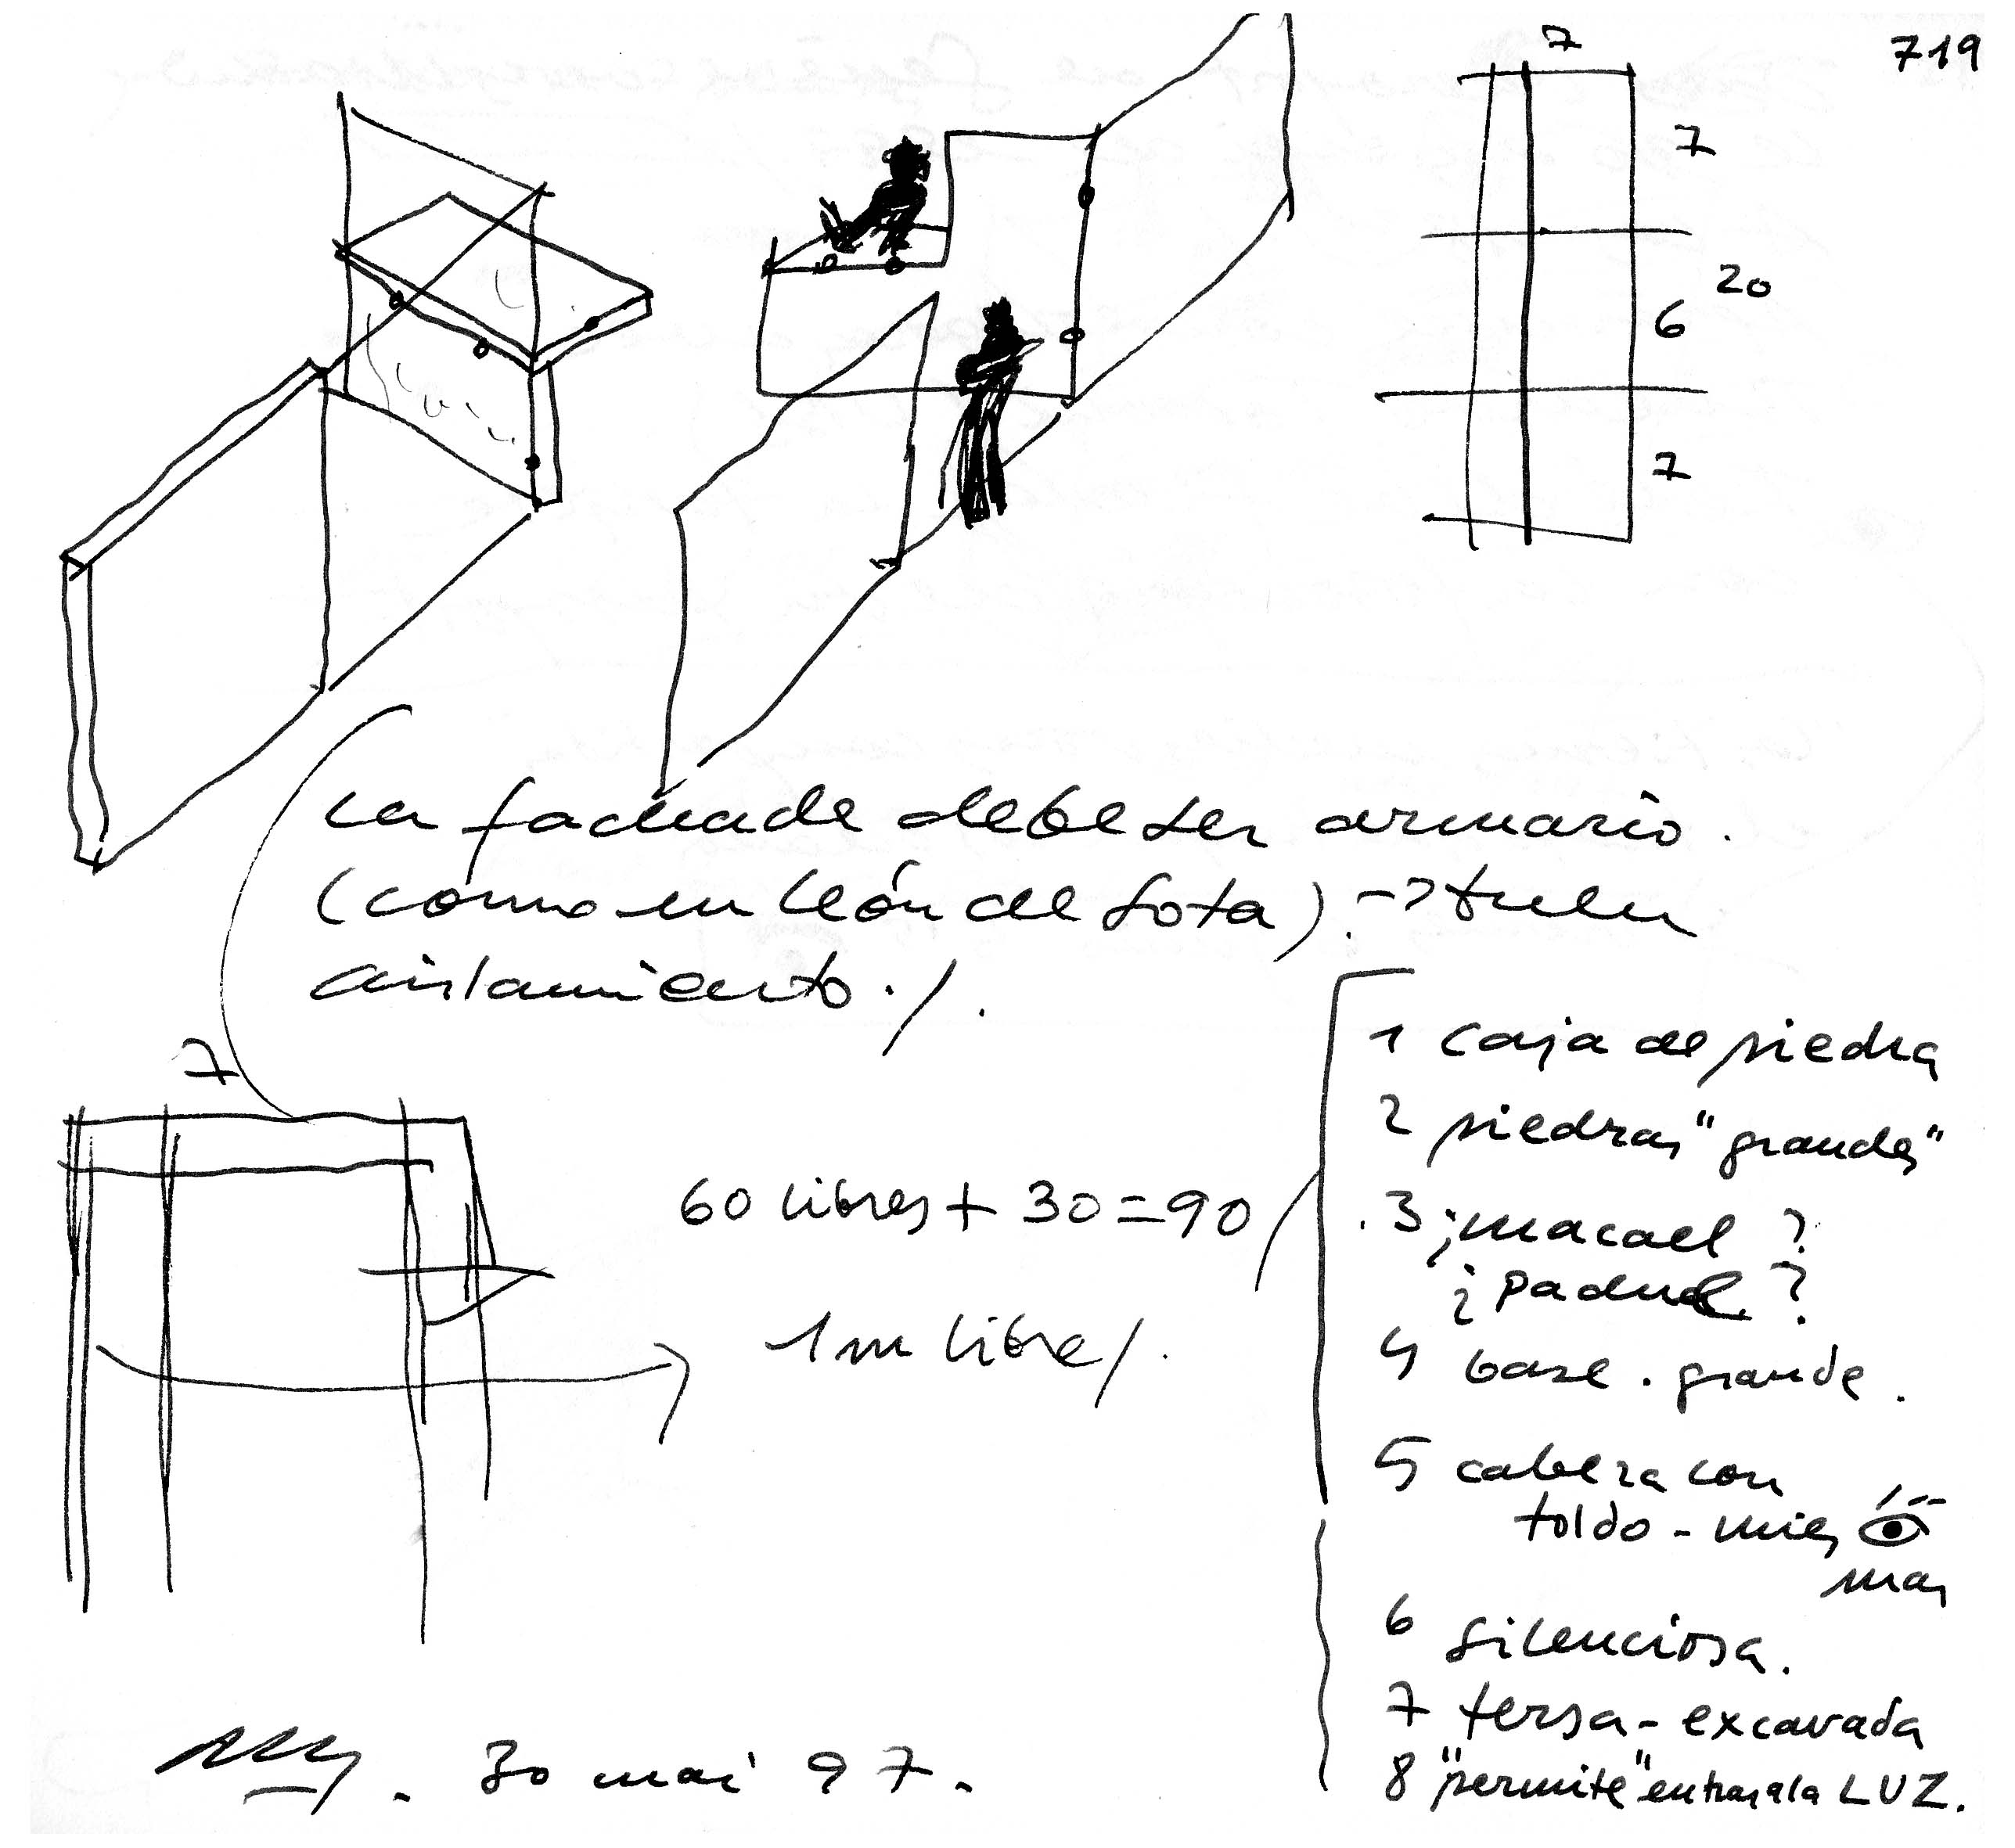 719
7
7
20
6
7
La fachada debe ser armario.
(como en León de Sota). →
aislamiento ./.
7
60 libres + 30 = 90
1m libre/.
1 caja de piedra
2 piedras "grandes"
.3 ¿macael?
¿Padul?
4 base . grande.
5 cabeza con
toldo - mies
mas
6 silenciosa.
7 tersa - excavada
8 "permite" entrar a la LUZ.
30 mai 97.